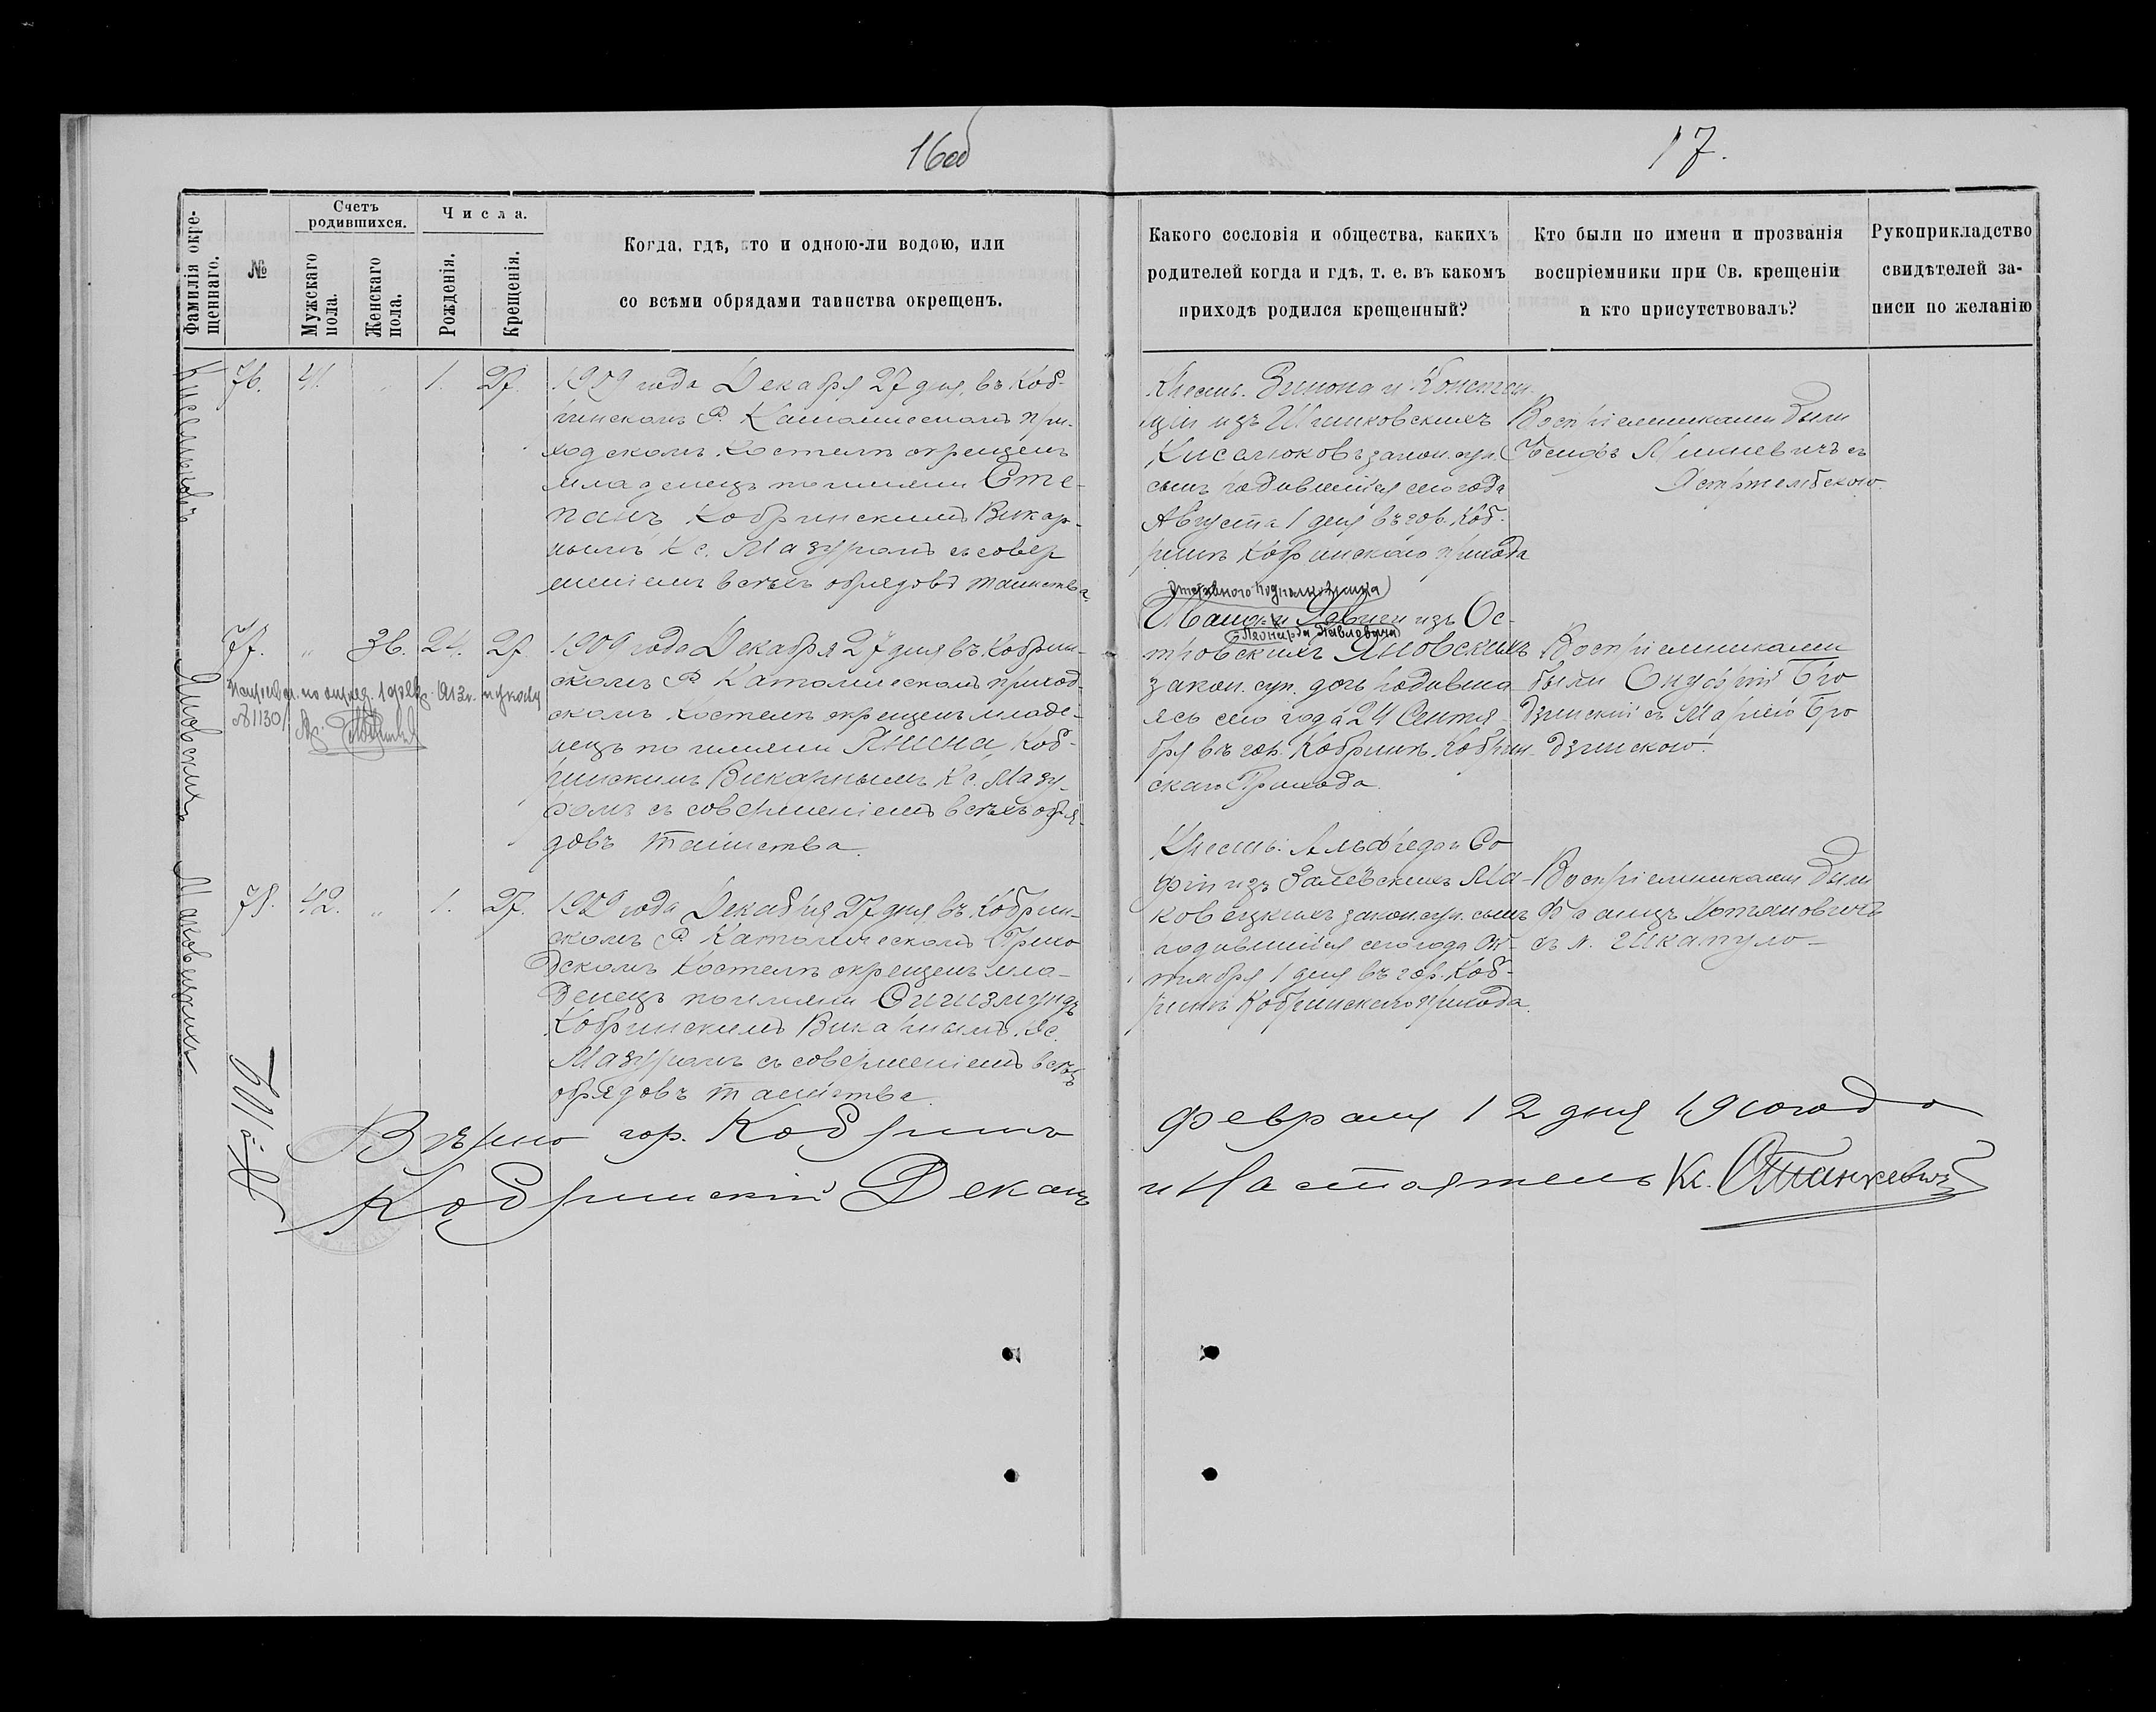 16об
17.
Фамилія окре-
щеннаго.
№
Счетъ
родившихся.
Мужскаго
пола.
Женскаго
пола.
Числа.
Рожденія.
Крещенія.
Когда, гдѣ, кто и одною-ли водою, или
со всѣми обрядами таинства окрещенъ.
Какого сословія и общества, какихъ
родителей когда и гдѣ, т. е. въ какомъ
приходѣ родился крещенный?
Кто были по имени и прозванія
воспріемники при Св. крещеніи
и кто присутствовалъ?
Рукоприкладство
свидѣтелей за-
писи по желанію
76. 41. 1. 27.
1909 года Декабря 27 дня, въ Коб-
ринскомъ Р. Католическомъ При-
ходскомъ Костелѣ окрещенъ
младенецъ по имени Сте-
панъ Кобринскимъ Викар-
нымъ Кс. Мазуромъ съ совер
шеніемъ всѣхъ обрядовъ таинства.
Крест. Зинона и Констан-
ціи изъ
Кисилюковъ закон. суп.
сынъ родившійся сего года
Августа 1 дня въ гор. Коб-
ринѣ Кобринскаго прихода
Воспріемниками были
съ
77. " 36. 24. 27.
1909 года Декабря 27 дня въ Кобрин-
скомъ Р. Католическомъ Приход-
скомъ Костелѣ окрещенъ младе-
нецъ по имени Янина Коб-
ринскимъ Викарнымъ Кс. Мазу-
ромъ съ совершеніемъ всѣхъ обря-
довъ таинства.
№ 1130
Подполковника
изъ Ос-
Павловича
тровскихъ Яновскихъ
закон. суп. дочь родивша-
яся сего года 24 Сентя-
бря въ гор. Кобринѣ Кобрин-
скаго Прихода.
Воспріемниками
были Онуфрій Бро
дзинскій съ Маріею Бро
дзинскою.
Яновскихъ
78. 42. " 1. 27.
1909 года Декабря 27 дня въ Кобрин-
скомъ Р. Католическомъ Прихо
дскомъ Костелѣ окрещенъ мла-
денецъ по имени Сигизмундъ
Кобринскимъ Викарнымъ Кс.
Мазуромъ съ совершеніемъ всѣхъ
обрядовъ таинства.
Крест. Альфреда и Со
фіи изъ Залевскихъ Ма-
ковецкихъ закон. суп. сынъ
родившійся сего года Ок-
тября 1 дня въ гор. Коб-
ринѣ Кобринскаго прихода.
Воспріемниками были
Францъ
съ
Маковецкихъ
Вѣрно гор. Кобринъ Февраля 12 дня 1910 года
Кобринскій Деканъ и Настоятель Кс.